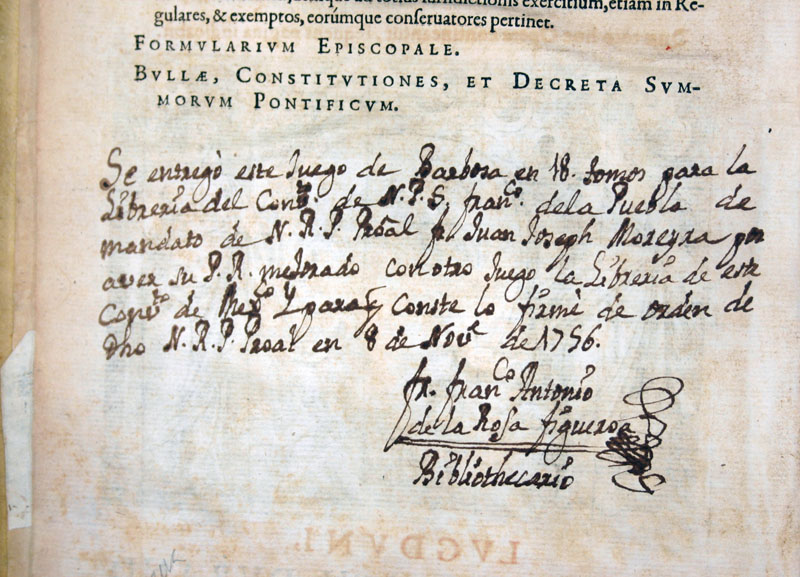 ad totius iurisdictionis exercitium, etiam in Re-
gulares, & exemptos, eorúmque conseruatores pertinet.
FORMVLARIVM EPISCOPALE.
BVLLÆ, CONSTITVTIONES, ET DECRETA SVM-
MORVM PONTIFICVM.
Se entregò este Juego de Barbosa en 18. tomos para la
Libreria del Conv.to de N.P.S. Fran.co de la Puebla de
mandato de N.R.P. Pro͂al Fr. Juan Joseph Moreyra por
aver su P.R. mejorado con otro Juego la Libreria de este
Conv.to de Mex.co Y para q̃ conste lo firmè de orden de
dho N.R.P. Proal en 8 de Nov.e de 1756.
Fr. Fran.co Antonio
de la Rosa Figueroa
Bibliothecario
LVGDVNI,